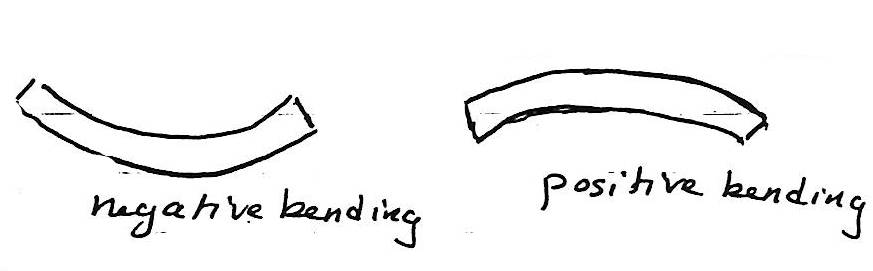 negative bending
positive bending